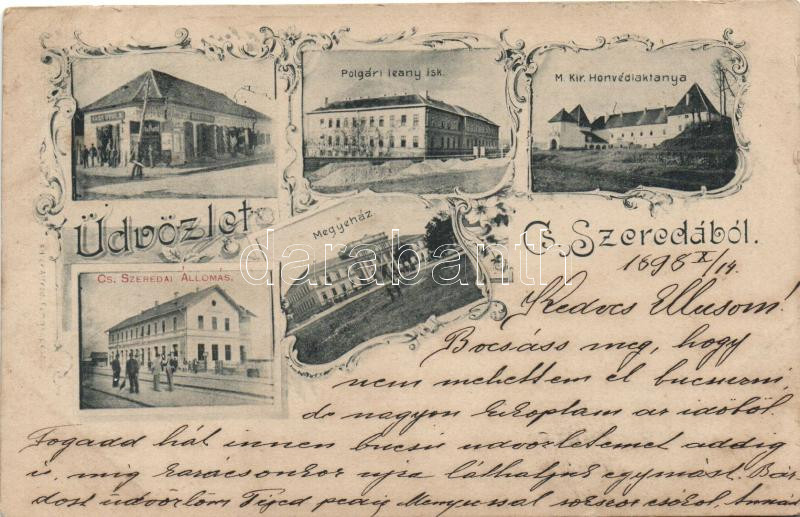 Polgári leany isk.
M. Kir. Honvédlaktanya
Üdvözlet
Cs. Szeredából.
Megyeház
Cs. SZEREDAI ÁLLOMÁS.
darabanth
1898 X/14.
Kedves Illusom!
Bocsáss meg, hogy
nem mehettem el bucsuzni,
de nagyon kikoptam az időből.
Fogadd hát innen bucsú üdvözletemet addig
is, mig karácsonkor ujra láthatjuk egymást.
üdvözlöm Tiged pedig Menyussal sokszor csókol,